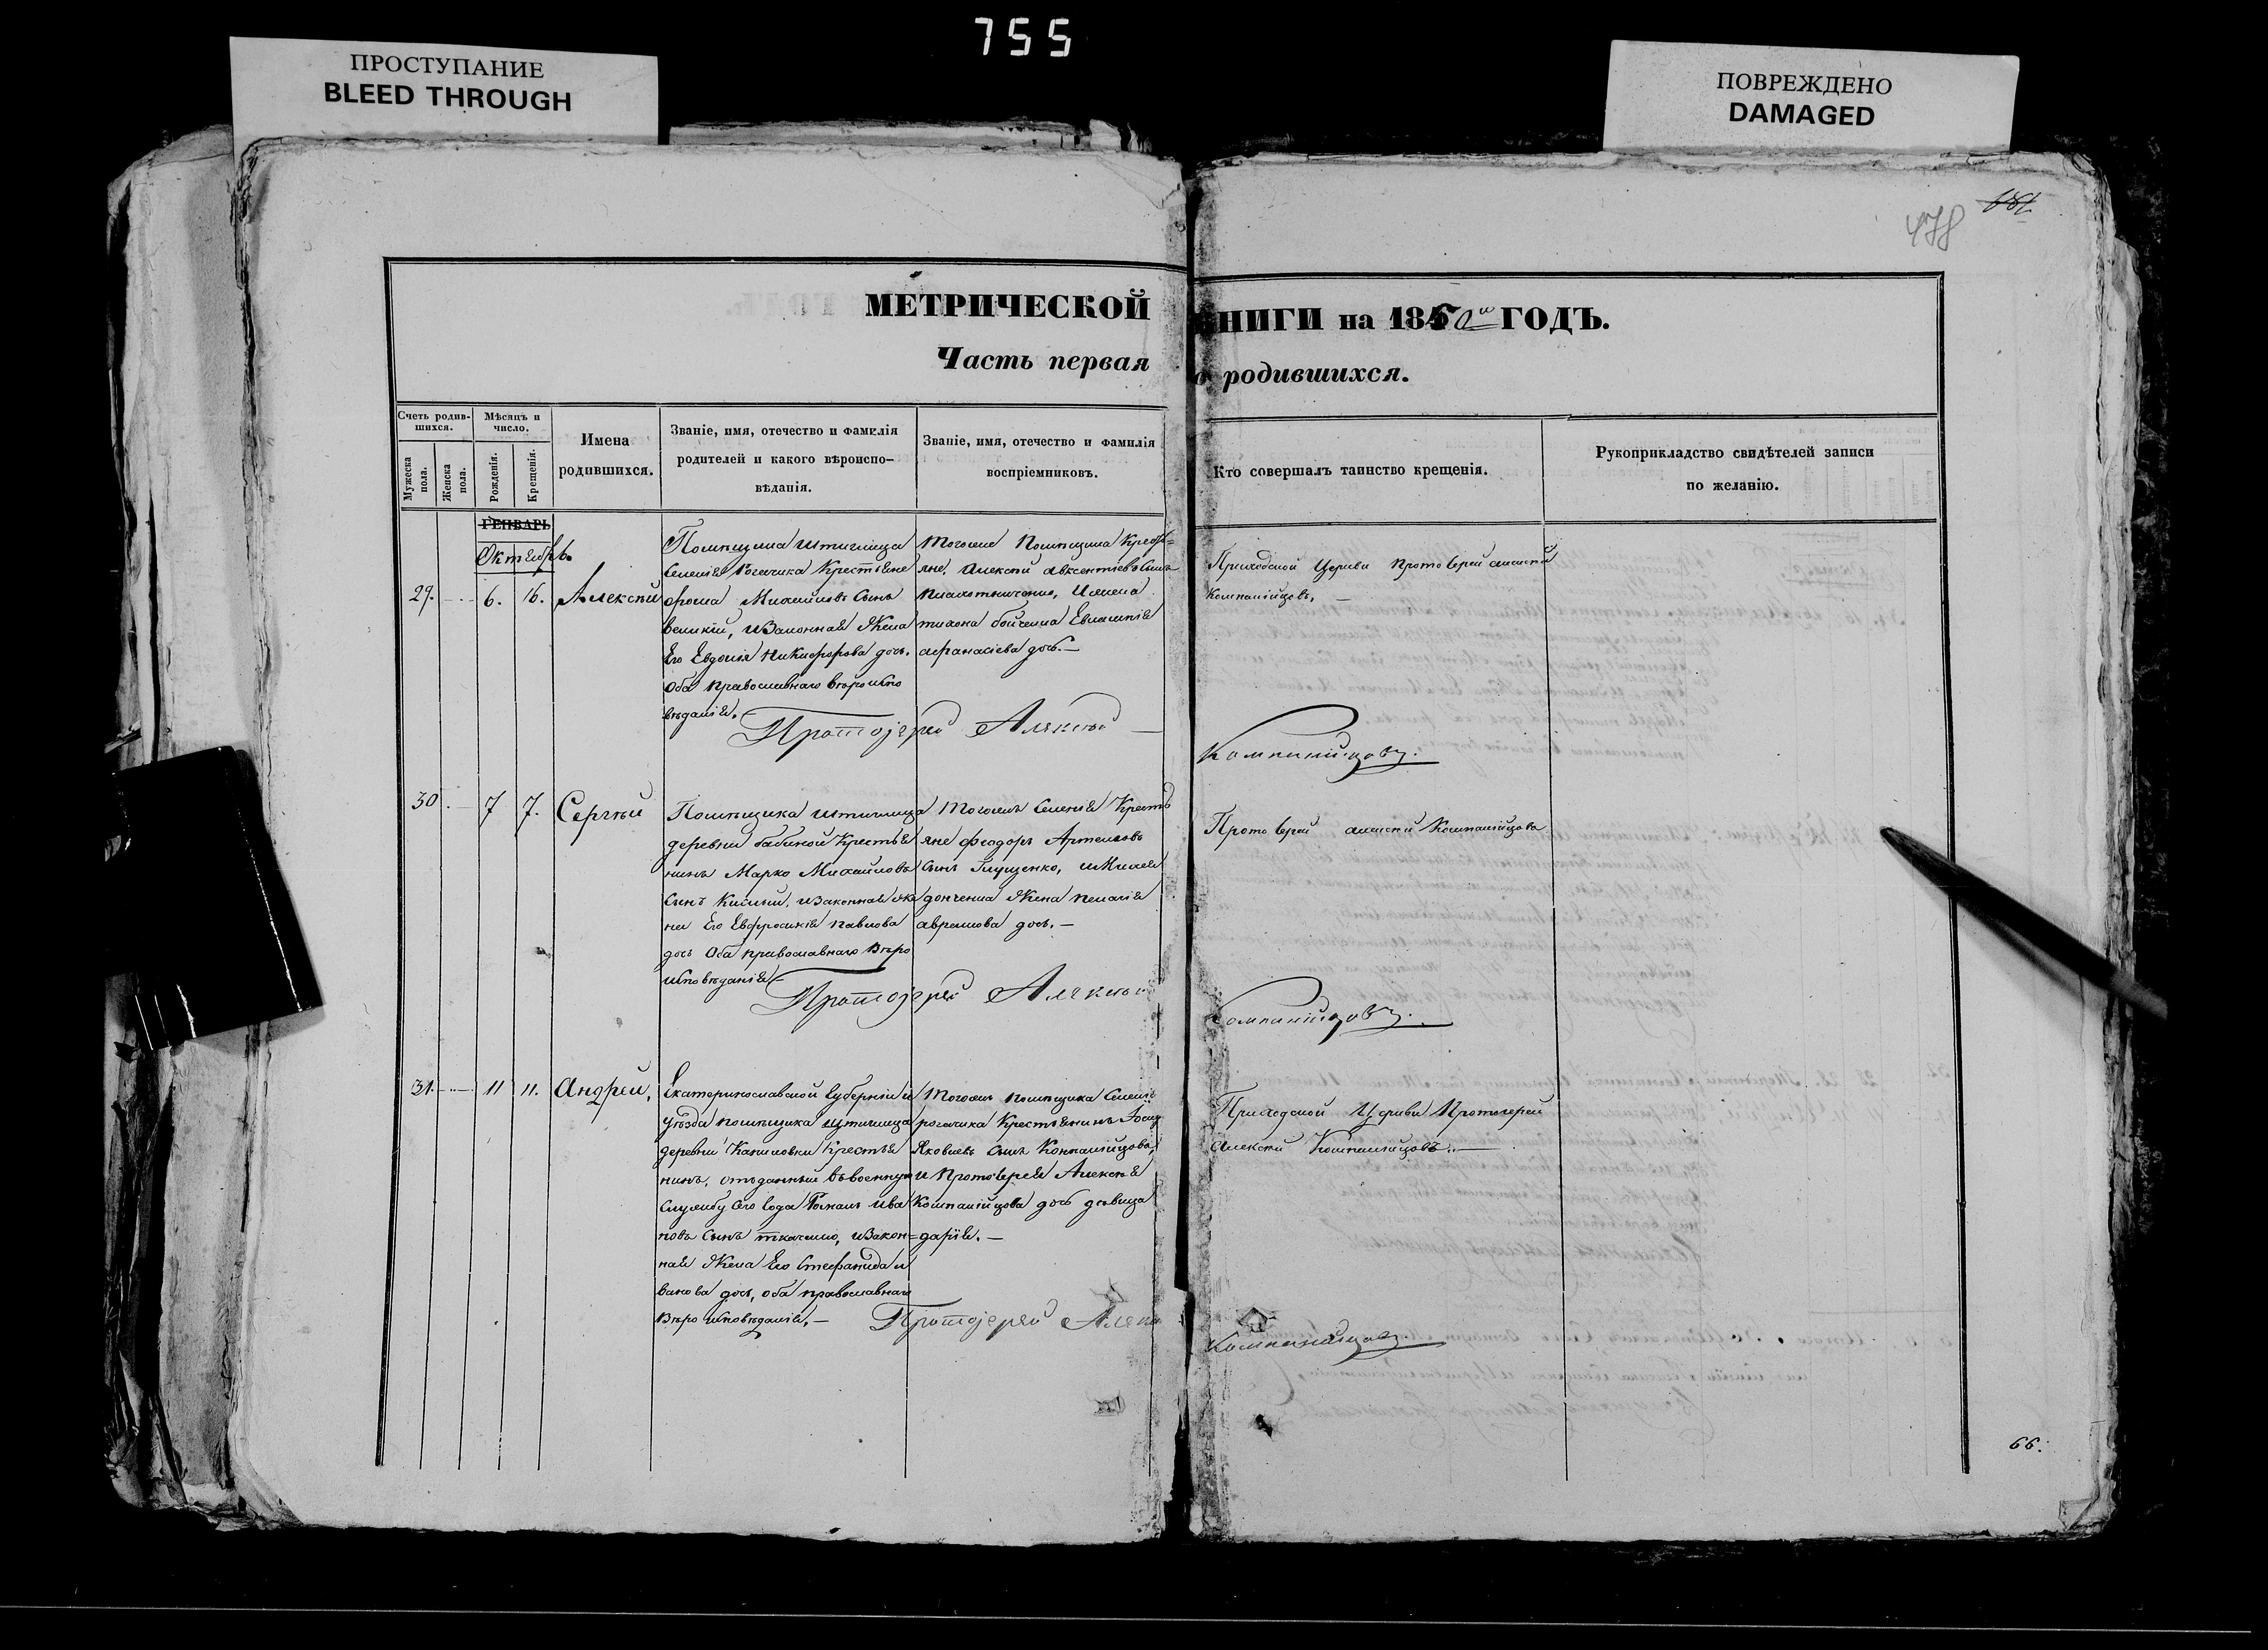 755
ПРОСТУПАНИЕ
BLEED THROUGH
ПОВРЕЖДЕНО
DAMAGED
478
МЕТРИЧЕСКОЙ КНИГИ на 1850й ГОДЪ.
Часть первая о родившихся.
Счетъ родив-
шихся.
Мужеска пола.
Женска пола.
Мѣсяцъ и
число.
Рожденія.
Крещенія.
Имена
родившихся.
Званіе, имя, отечество и фамилія
родителей и какого вѣроиспо-
вѣданія.
Званіе, имя, отечество и фамилія
воспріемниковъ.
Кто совершалъ таинство крещенія.
Рукоприкладство свидѣтелей записи
по желанію.
ГЕНВАРЬ
Октябрь
29. 6. 16. Алексѣй
Помѣщика
Селенія Рогачика Крестьяне
Михайловъ Сынъ
великій, изаконная Жена
Его Евдокія Никифорова дочь.
Оба православнаго вѣроиспо
вѣданія.
Тогоже Помѣщика Кресть=
яне, Алексѣй авксентіевъ Сынъ
Евлампія
афанасіева дочь.—
Приходской Церкви Протоіерей алексѣй
Компанійцовъ.
Протоіерей Алексѣй Компанійцовъ.
30. 7 7. Сергѣй
Помѣщика
деревни бабиной Крестья
нинъ Марко Михайловъ
Сынъ изаконная же
на Его Евфросинія павлова
дочь Оба православнаго Вѣро
исповѣданія
Тогожъ Селенія Кресть
яне феодоръ Артемовъ
Сынъ Глущенко,
Жена пелагія
аврамова дочь.—
Протоіерей алексѣй Компанійцовъ
Протоіерей Алексѣй Компанійцовъ.
31. 11 11. Андрей,
Екатеринославской Губерніи и
Уѣзда помѣщика
деревни Крестья
нинъ, отъданный въвоенную
Службу Сего Года Романъ Ива
новъ Сынъ ткаченко, изакон=
ная Жена Его Стефанида и
ванова дочь, оба православнаго
Вѣро исповѣданія.—
Тогожъ помѣщика Селенія
рогачика Крестьянинъ
Яковлевъ Сынъ Компанійцовъ,
и Протоіерея Алексѣя
Компанійцова дочь дѣвица
дарія.—
Приходской Церкви Протоіерей
Алексѣй Компанійцовъ.—
Протоіерей Алексѣй
Компанійцовъ.
66.